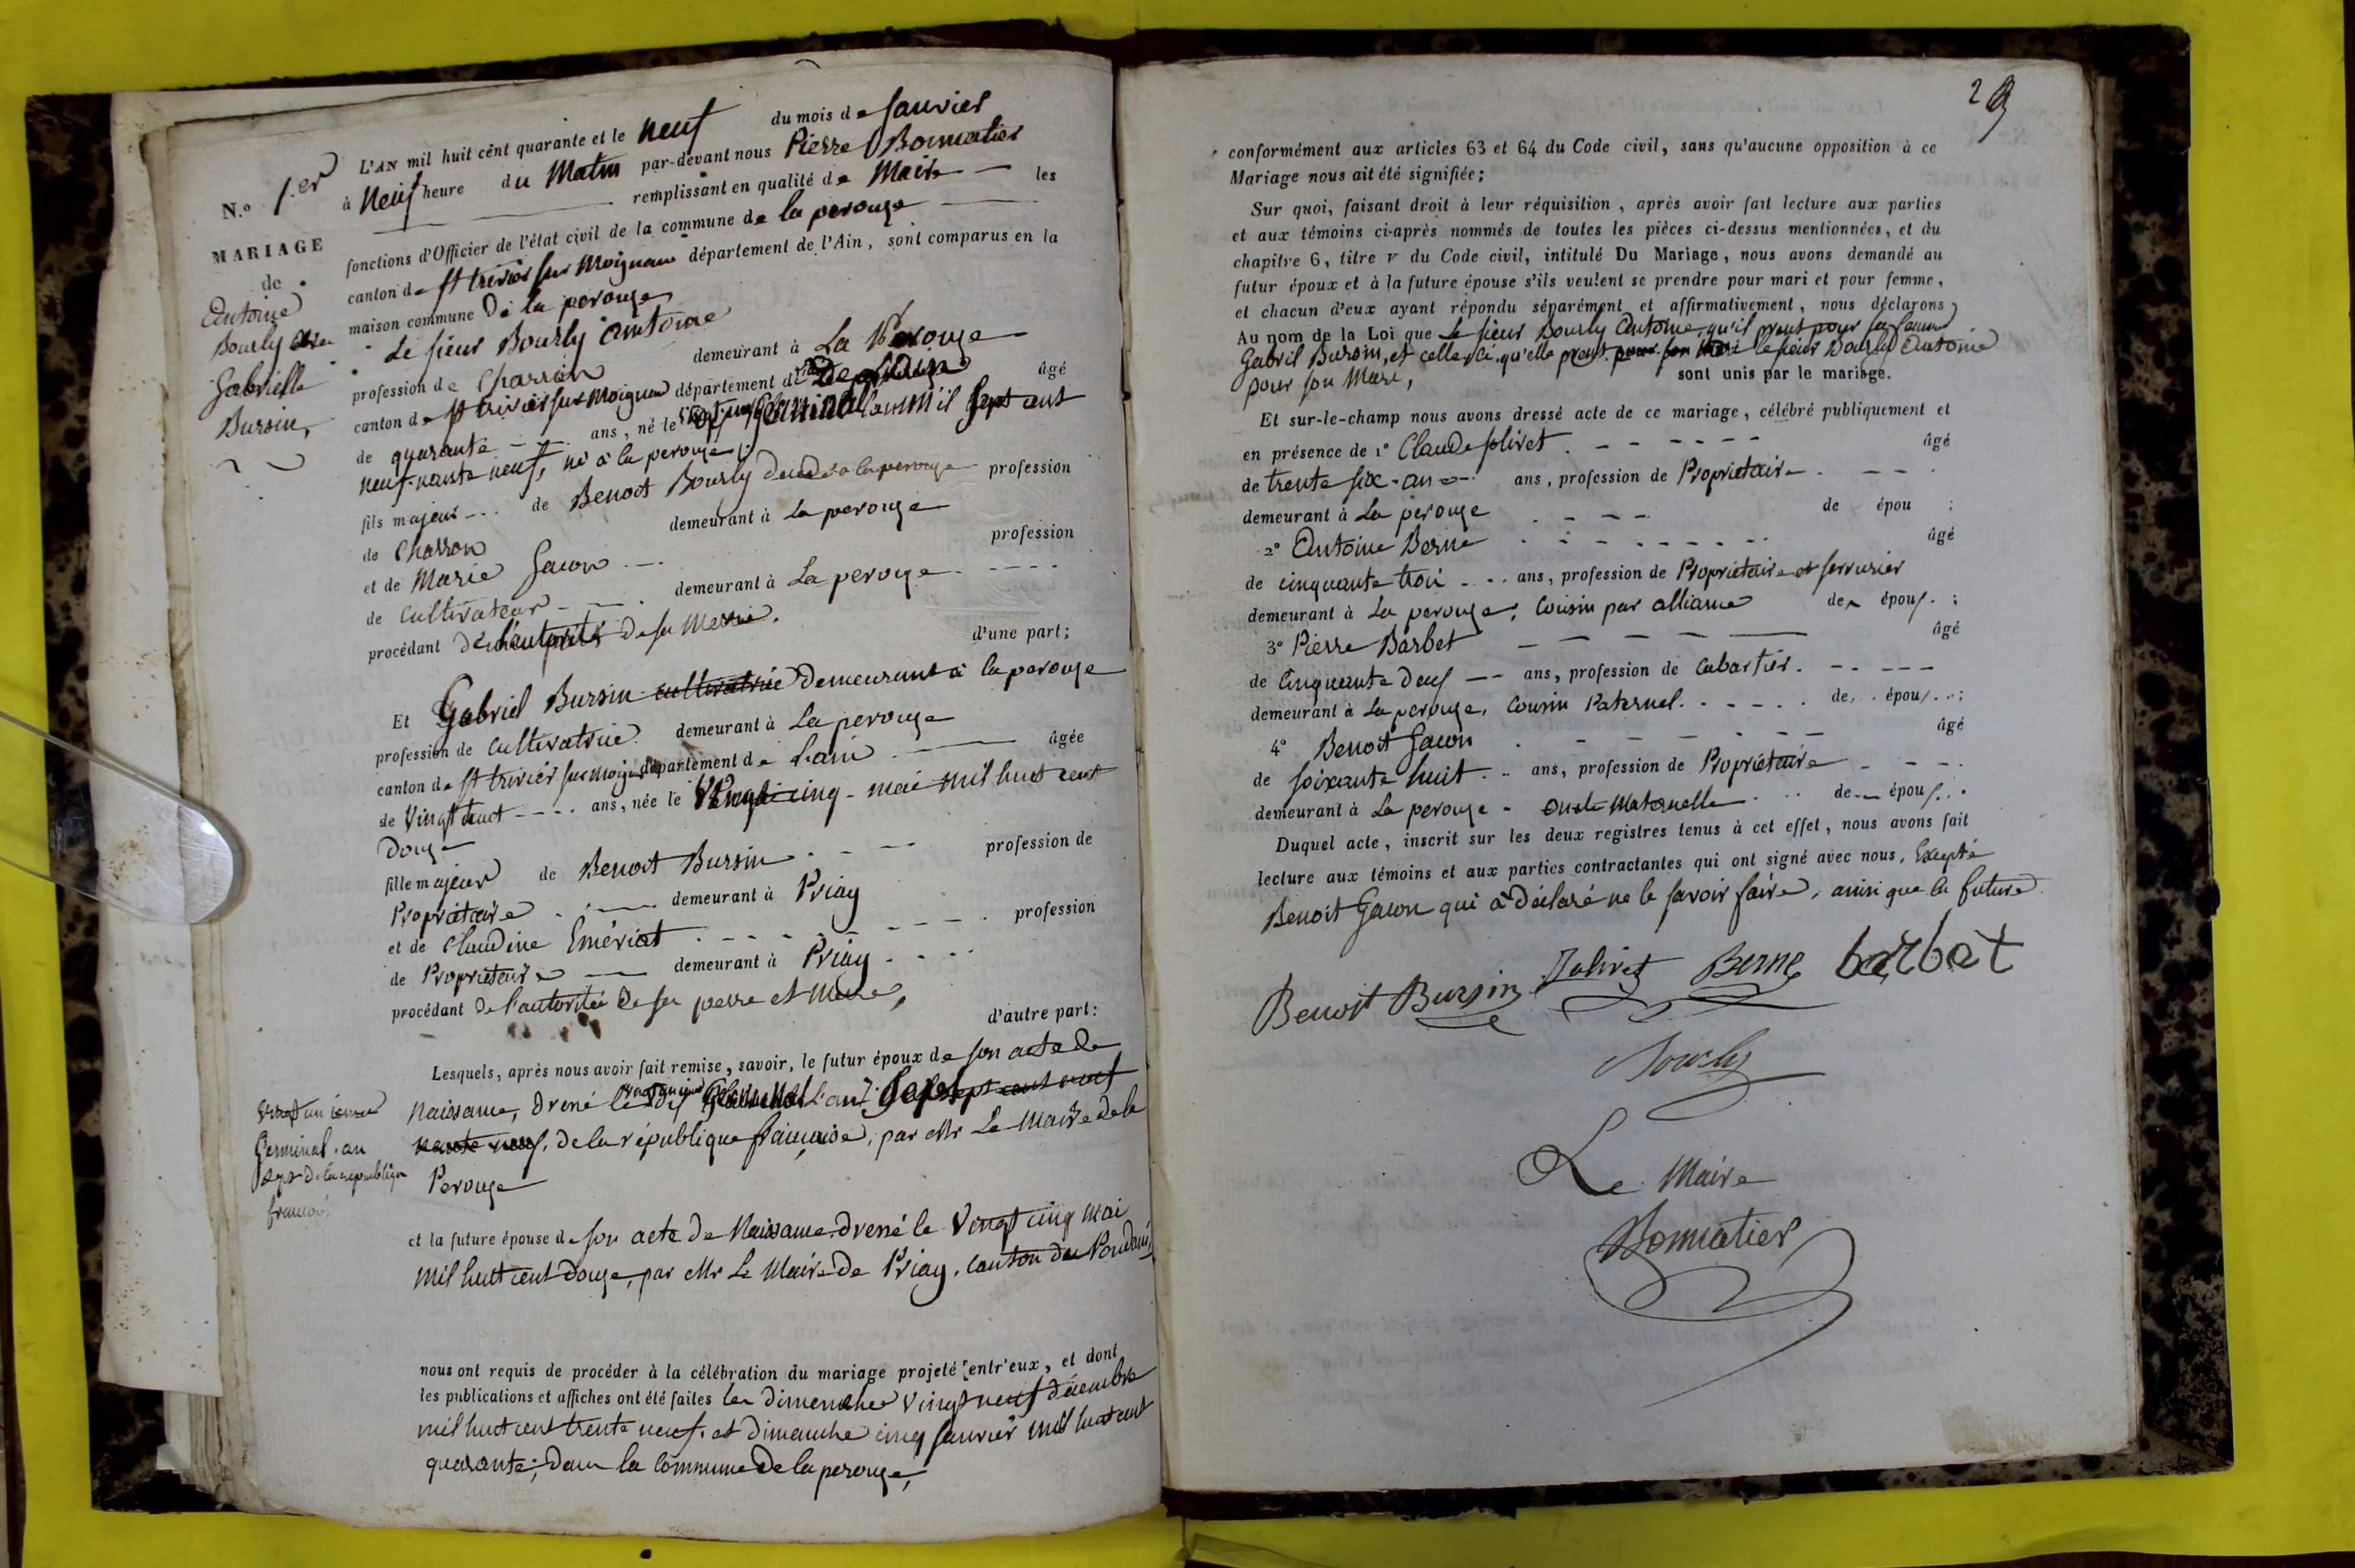 N.o 1.er
MARIAGE
de
Antoine
Bourly avec
Gabrielle
Bursin,
L'AN mil huit cent quarante et le neuf du mois de Janvier
à Neuf heure du Matin par-devant nous Pierre Bonnatier
remplissant en qualité de Maire les
fonctions d'Officier de l'état civil de la commune de la perouze
canton de St trivier sur Moignan département de l'Ain, sont comparus en la
maison commune de la perouze
Le sieur Bourly Antoine
profession de Charron demeurant à La Perouze
canton de St trivier sur moignan département de âgé
de quarante ans, né le Germinal l'an mil sept cent
neuf-nante neuf, né à la perouze
fils majeur de Benoit Bourly décédé à la perouze profession
de Charron demeurant à la perouze
et de Marie Gacon profession
de cultivateur demeurant à La perouze
procédant de l'autorité de sa Merre.
d'une part;
Et Gabriel Bursin cultivatrice demeurant à la perouze
profession de cultivatrice demeurant à La perouze
canton de St trivier sur moignan département de L'ain âgée
de Vingt huit ans, née le Vingt cinq mai mil huit cent
douze
fille majeur de Benoit Bursin profession de
Propriétaire demeurant à Priay
et de Claudine Emériat profession
de Propriétaire demeurant à Priay
procédant de l'autorité de sa perre et Merre,
d'autre part:
Lesquels, après nous avoir fait remise, savoir, le futur époux de son acte de
Naissance, dressé le Germinal l'an sept cent neuf
nante neuf, de la république française, par Mr Le Maire de la
Perouze
Vingt un ieme
Germinal, an
sept de la republique
francais
et la future épouse de son acte de Naissance dressé le Vingt cinq Mai
Mil huit cent douze, par Mr Le Maire de Priay, canton du Pondain,
nous ont requis de procéder à la célébration du mariage projeté entr'eux, et dont
les publications et affiches ont été faites les dimenche Vingt neuf décembre
mil huit cent trente neuf, et dimanche cinq Janvier mil huit cent
quarante, dans la Commune de la perouze,
29
conformément aux articles 63 et 64 du Code civil, sans qu'aucune opposition à ce
Mariage nous ait été signifiée;
Sur quoi, faisant droit à leur réquisition, après avoir fait lecture aux parties
et aux témoins ci-après nommés de toutes les pièces ci-dessus mentionnées, et du
chapitre 6, titre v du Code civil, intitulé Du Mariage, nous avons demandé au
futur époux et à la future épouse s'ils veulent se prendre pour mari et pour femme,
et chacun d'eux ayant répondu séparément et affirmativement, nous déclarons
Au nom de la Loi que Le sieur Bourly Antoine qu'il prent pour sa femme
Gabril Bursin, et celle ci qu'elle prent pour son Mari le sieur Bourly Antoine
pour son Mari, sont unis par le mariage.
Et sur-le-champ nous avons dressé acte de ce mariage, célébré publiquement et
en présence de 1° Claude Jolivet âgé
de trente six - an ans, profession de Propriétaire
demeurant à La perouze de épou ;
2° Antoine Berne âgé
de cinquante troi ans, profession de Propriétaire et serrurier
demeurant à La perouze, Cousin par alliance de épou ;
3° Pierre Barbet âgé
de Cinquante deux ans, profession de Cabartier
demeurant à La perouze, Cousin Paternel de épou ;
4° Benoit Gacon âgé
de soixante huit ans, profession de Propriétaire
demeurant à La perouze - Oncle Maternelle de épou
Duquel acte, inscrit sur les deux registres tenus à cet effet, nous avons fait
lecture aux témoins et aux parties contractantes qui ont signé avec nous, Excepté
Benoit Gacon qui a Déclaré ne le savoir faire, ainsi que la future
Benoit Bursin Jolivet Berne barbet
Bourly
Le Maire
Bonnatier